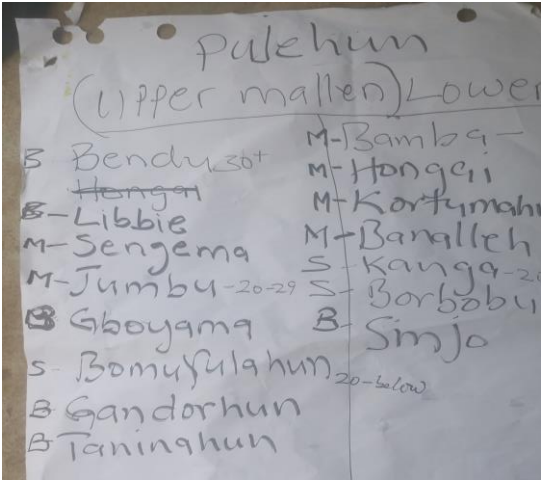 Pujehun
(Upper mallen) Lower
B Bendu 30+
Hongai
B-Libbie
M-Sengema
M-Jumbu-20-29
B Gboyama
S-Bomuyulahun 20-below
B Gandorhun
B Taninahun
M-Bamba-
M-Hongai
M-Kortumahu
M-Banalleh
S-Kanga-20
S-Borbobu
B-Simjo